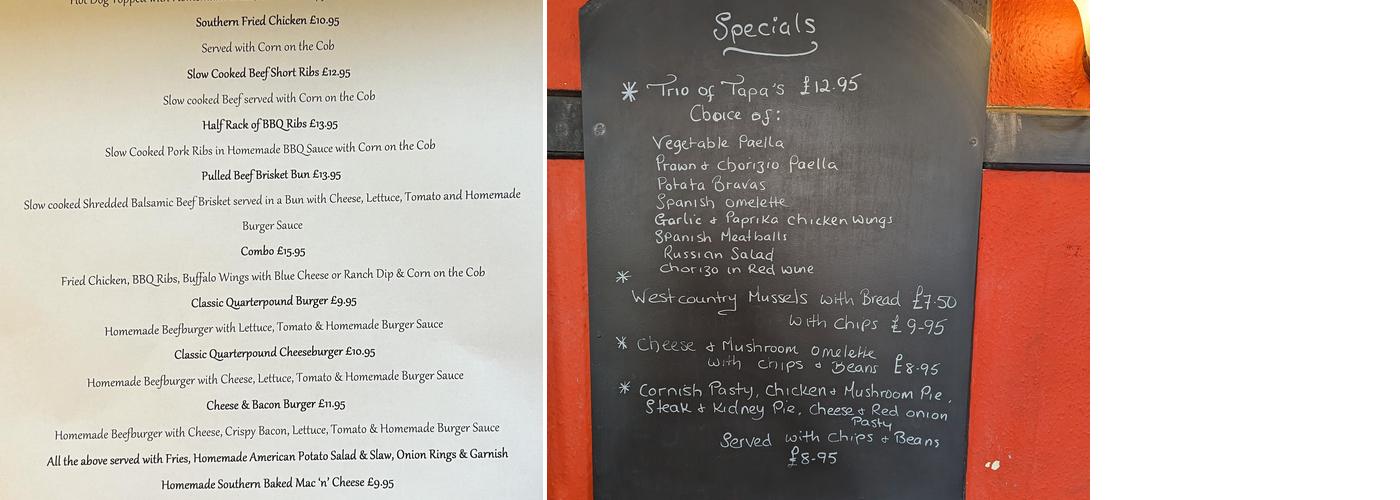 Southern Fried Chicken £10.95
Served with Corn on the Cob
Slow Cooked Beef Short Ribs £12.95
Slow cooked Beef served with Corn on the Cob
Half Rack of BBQ Ribs £13.95
Slow Cooked Pork Ribs in Homemade BBQ Sauce with Corn on the Cob
Pulled Beef Brisket Bun £13.95
Slow cooked Shredded Balsamic Beef Brisket served in a Bun with Cheese, Lettuce, Tomato and Homemade
Burger Sauce
Combo £15.95
Fried Chicken, BBQ Ribs, Buffalo Wings with Blue Cheese or Ranch Dip & Corn on the Cob
Classic Quarterpound Burger £9.95
Homemade Beefburger with Lettuce, Tomato & Homemade Burger Sauce
Classic Quarterpound Cheeseburger £10.95
Homemade Beefburger with Cheese, Lettuce, Tomato & Homemade Burger Sauce
Cheese & Bacon Burger £11.95
Homemade Beefburger with Cheese, Crispy Bacon, Lettuce, Tomato & Homemade Burger Sauce
All the above served with Fries, Homemade American Potato Salad & Slaw, Onion Rings & Garnish
Homemade Southern Baked Mac 'n' Cheese £9.95
Specials
* Trio of Tapa's £12.95
Choice of:
Vegetable Paella
Prawn & Chorizio Paella
Potata Bravas
Spanish omelette
Garlic & Paprika chicken wings
Spanish Meatballs
Russian Salad
Chorizo in Red wine
*
Westcountry Mussels with Bread £7.50
with chips £9-95
* Cheese & Mushroom omelette
with chips & Beans £8.95
* Cornish Pasty, Chicken & Mushroom Pie,
Steak & Kidney Pie, Cheese & Red onion
Pasty
Served with Chips & Beans
£8-95